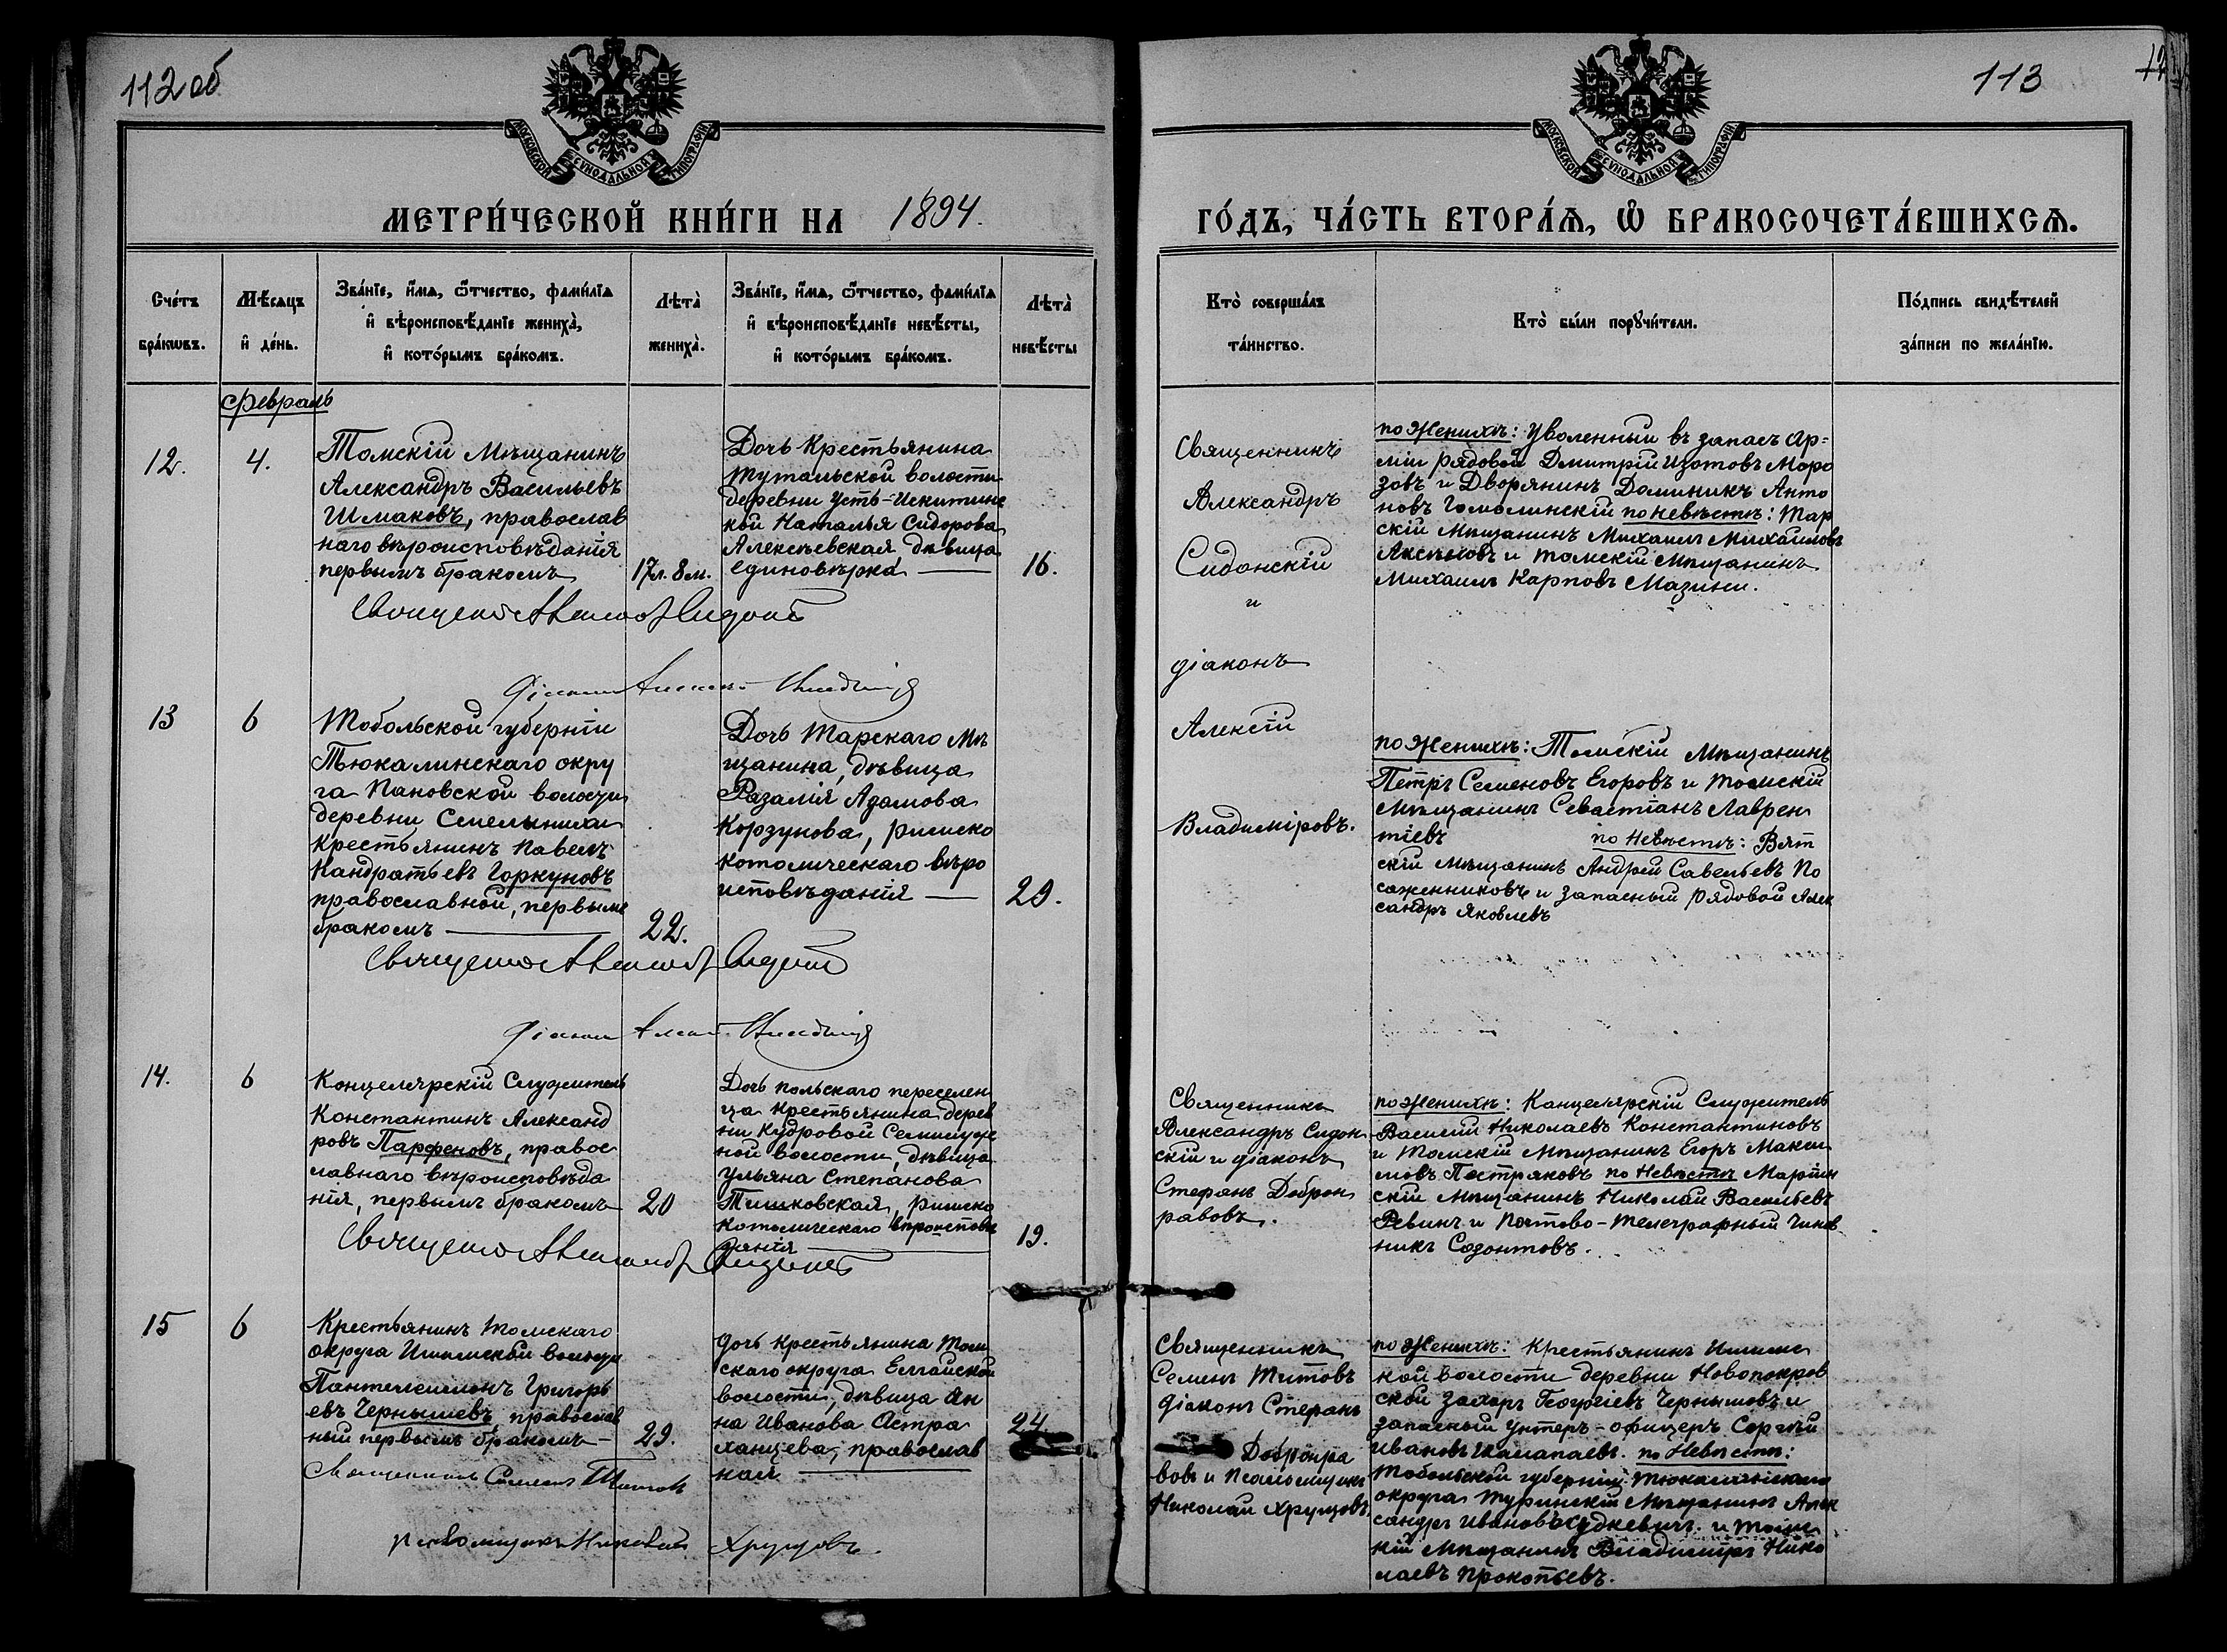 112 об
113
МОСКОВСКОЙ СѴНОДАЛЬНОЙ ТИПОГРАФІИ
МОСКОВСКОЙ СѴНОДАЛЬНОЙ ТИПОГРАФІИ
МЕТРИ́ЧЕСКОЙ КНИ́ГИ НА 1894.
ГО́ДЪ, ЧА́СТЬ ВТОРА́Ѧ, Ѽ БРАКОСОЧЕТА́ВШИХСѦ.
Сче́тъ
бра́кѡвъ.
Мѣ́сяцъ
и҆ де́нь.
Зва́нїе, и҆́мѧ, ѻ҆́тчество, фами́лїѧ
и҆ вѣроисповѣ́данїе жениха̀,
и҆ кото́рымъ бра́комъ.
Лѣта̀
жениха̀.
Зва́нїе, и҆́мѧ, ѻ҆́тчество, фами́лїѧ
и҆ вѣроисповѣ́данїе невѣ́сты,
и҆ кото́рымъ бра́комъ.
Лѣта̀
невѣ́сты
Кто̀ соверша́лъ
та́инство.
Кто̀ бы́ли порꙋчи́тели.
По́дпись свидѣ́телей
за́писи по жела́нїю.
Февраль
12.
4.
Томскій Мѣщанинъ
Александръ Васильевъ
Шмаковъ, православ
наго вѣроисповѣданія
первымъ бракомъ
17л. 8м.
Дочь Крестьянина
Тутальской волости
деревни Усть-Искитинс
кой Наталья Сидорова
Алексѣевская, дѣвица
единовѣрка —
16.
Священникъ
Александръ
Сидонскій
и
діаконъ
Алексій
Владиміровъ.
по Женихѣ: Уволенный въ запасъ Ар=
міи рядовой Дмитрій Изотовъ Моро
зовъ и Дворянинъ Доминикъ Анто
новъ Гомолинскій по невѣстѣ: Тар
скій Мѣщанинъ Михаилъ Михайловъ
Аксеновъ и томскій Мѣщанинъ
Михаилъ Карповъ Мазини.
13
6
Тобольской губерніи
Тюкалинскаго окру
га Пановской волости
деревни Смелынихи
крестьянинъ Павелъ
Кандратьевъ Горкуновъ
православной, первымъ
бракомъ —
22.
Дочь Тарскаго Мѣ
щанина, дѣвица
Розалія Адамова
Корзунова, римско
католическаго вѣро
исповѣданія —
29.
по Женихѣ: Томскій Мѣщанинъ
Петръ Семеновъ Егоровъ и Томскій
Мѣщанинъ Севастіанъ Лаврен
тіевъ по Невѣстѣ: Вят
скій Мѣщанинъ Андрей Савельевъ По
саженниковъ и запасный рядовой Алек
сандръ Яковлевъ
14.
6
Концелярскій Служитель
Константинъ Александ
ровъ Парфеновъ, правос
лавнаго вѣроисповѣда
нія, первымъ бракомъ
20
Дочь польскаго переселен
ца крестьянина дерев
ни Кудровой Семилуж
ной волости, дѣвица
Ульяна Степанова
Тишковская, римско
католическаго вѣроисповѣ
данія —
19.
Священникъ
Александръ Сидон
скій и діаконъ
Стефанъ Доброн
равовъ.
по Женихѣ: Канцелярскій Служитель
Василій Николаевъ Константиновъ
и Томскій Мѣщанинъ Егоръ Макси
мовъ Пестряковъ по Невѣстѣ Маріин
скій Мѣщанинъ Николай Васильевъ
Ревинъ и Почтово-телеграфный Чинов
никъ Созонтовъ.
15
6
Крестьянинъ Томскаго
округа Ишимской волости
Пантелеимонъ Григорь
евъ Чернышевъ, православ
ный первымъ бракомъ —
29.
Дочь крестьянина Том
скаго округа Елгайской
волости, дѣвица Ан
на Иванова Астра
ханцева, православ
ная —
24
Священникъ
Семенъ Титовъ
діаконъ Стефанъ
Добронра
вовъ и Псаломщикъ
Николай Хрущовъ.
по Женихѣ: Крестьянинъ Ишимс
кой волости деревни Новопокров
ской Захаръ Георгіевъ Чернышовъ и
запасный унтеръ-офицеръ Сергѣй
Ивановъ по Невѣстѣ:
Тобольской губерніи Тюкалинскаго
округа Туринскій Мѣщанинъ Алек
сандръ Ивановъ и томс
кій Мѣщанинъ Владиміръ Нико
лаевъ Прокопьевъ.
Священникъ Семенъ Титовъ
псаломщикъ Николай Хрущовъ.